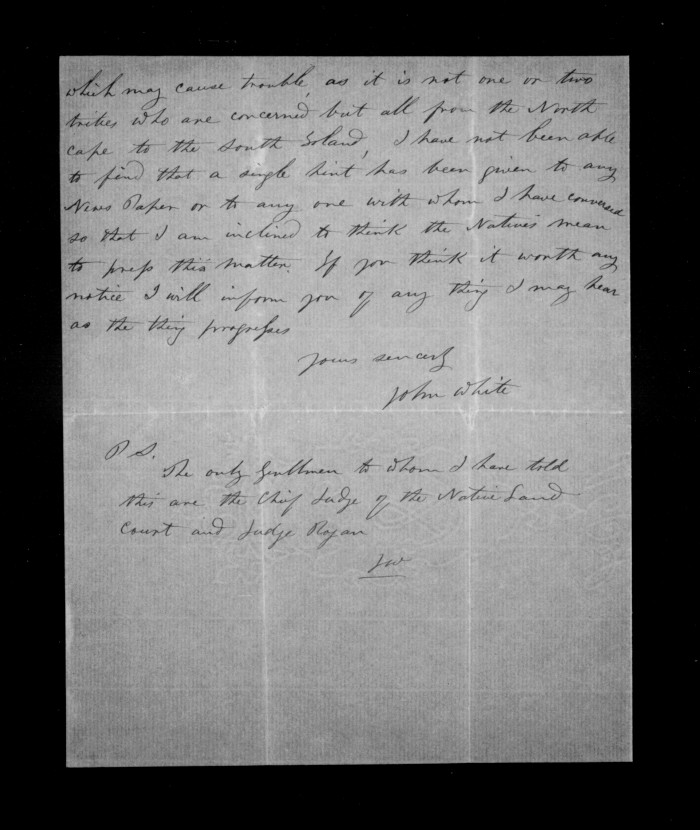 which may cause trouble, as it is not one or two
tribes who are concerned but all from the North
cape to the South Island, I have not been able
to find that a single hint has been given to any
News Paper or to any one with whom I have conversed
so that I am inclined to think the Natives mean
to press this matter. If you think it worth any
notice I will inform you of any thing I may hear
as the thing progresses
yours sincerly
John White
P S.
The only Gentlmen to whom I have told
this are the Chief Judge of the Native Land
Court and Judge Rogan
JW